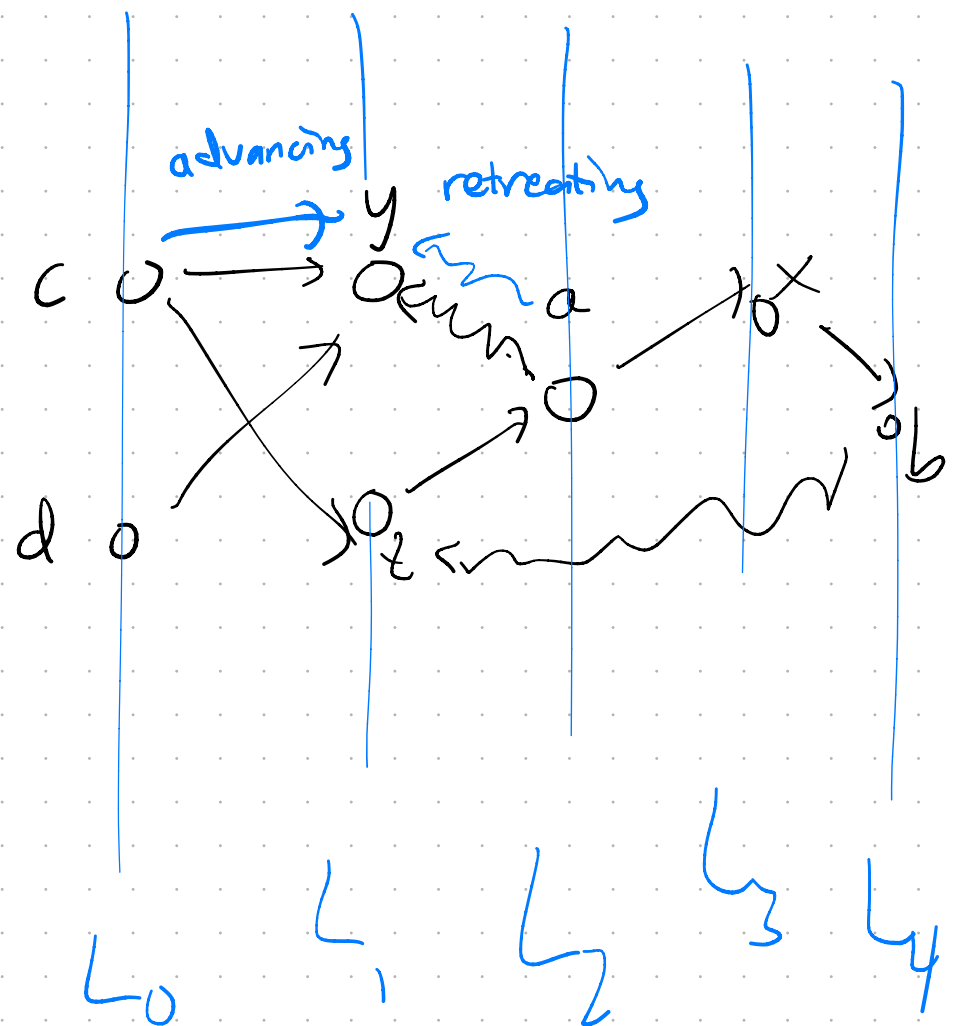 advancing
retreating
y
c
a
x
b
d
z
L0
L1
L2
L3
L4